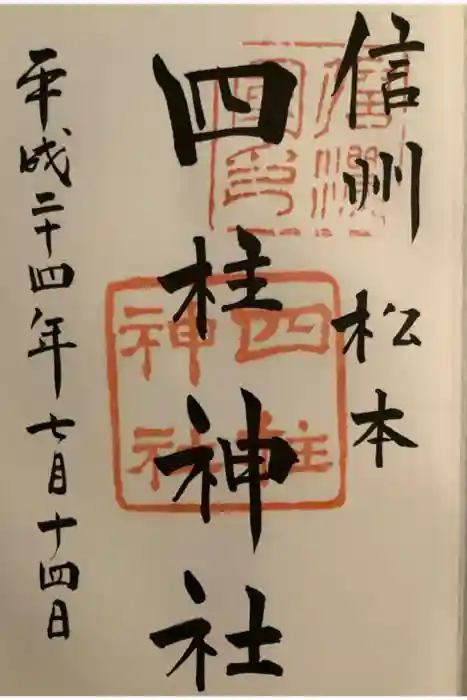 信州 松本
四柱神社
平成二十四年七月十四日
四柱
神社